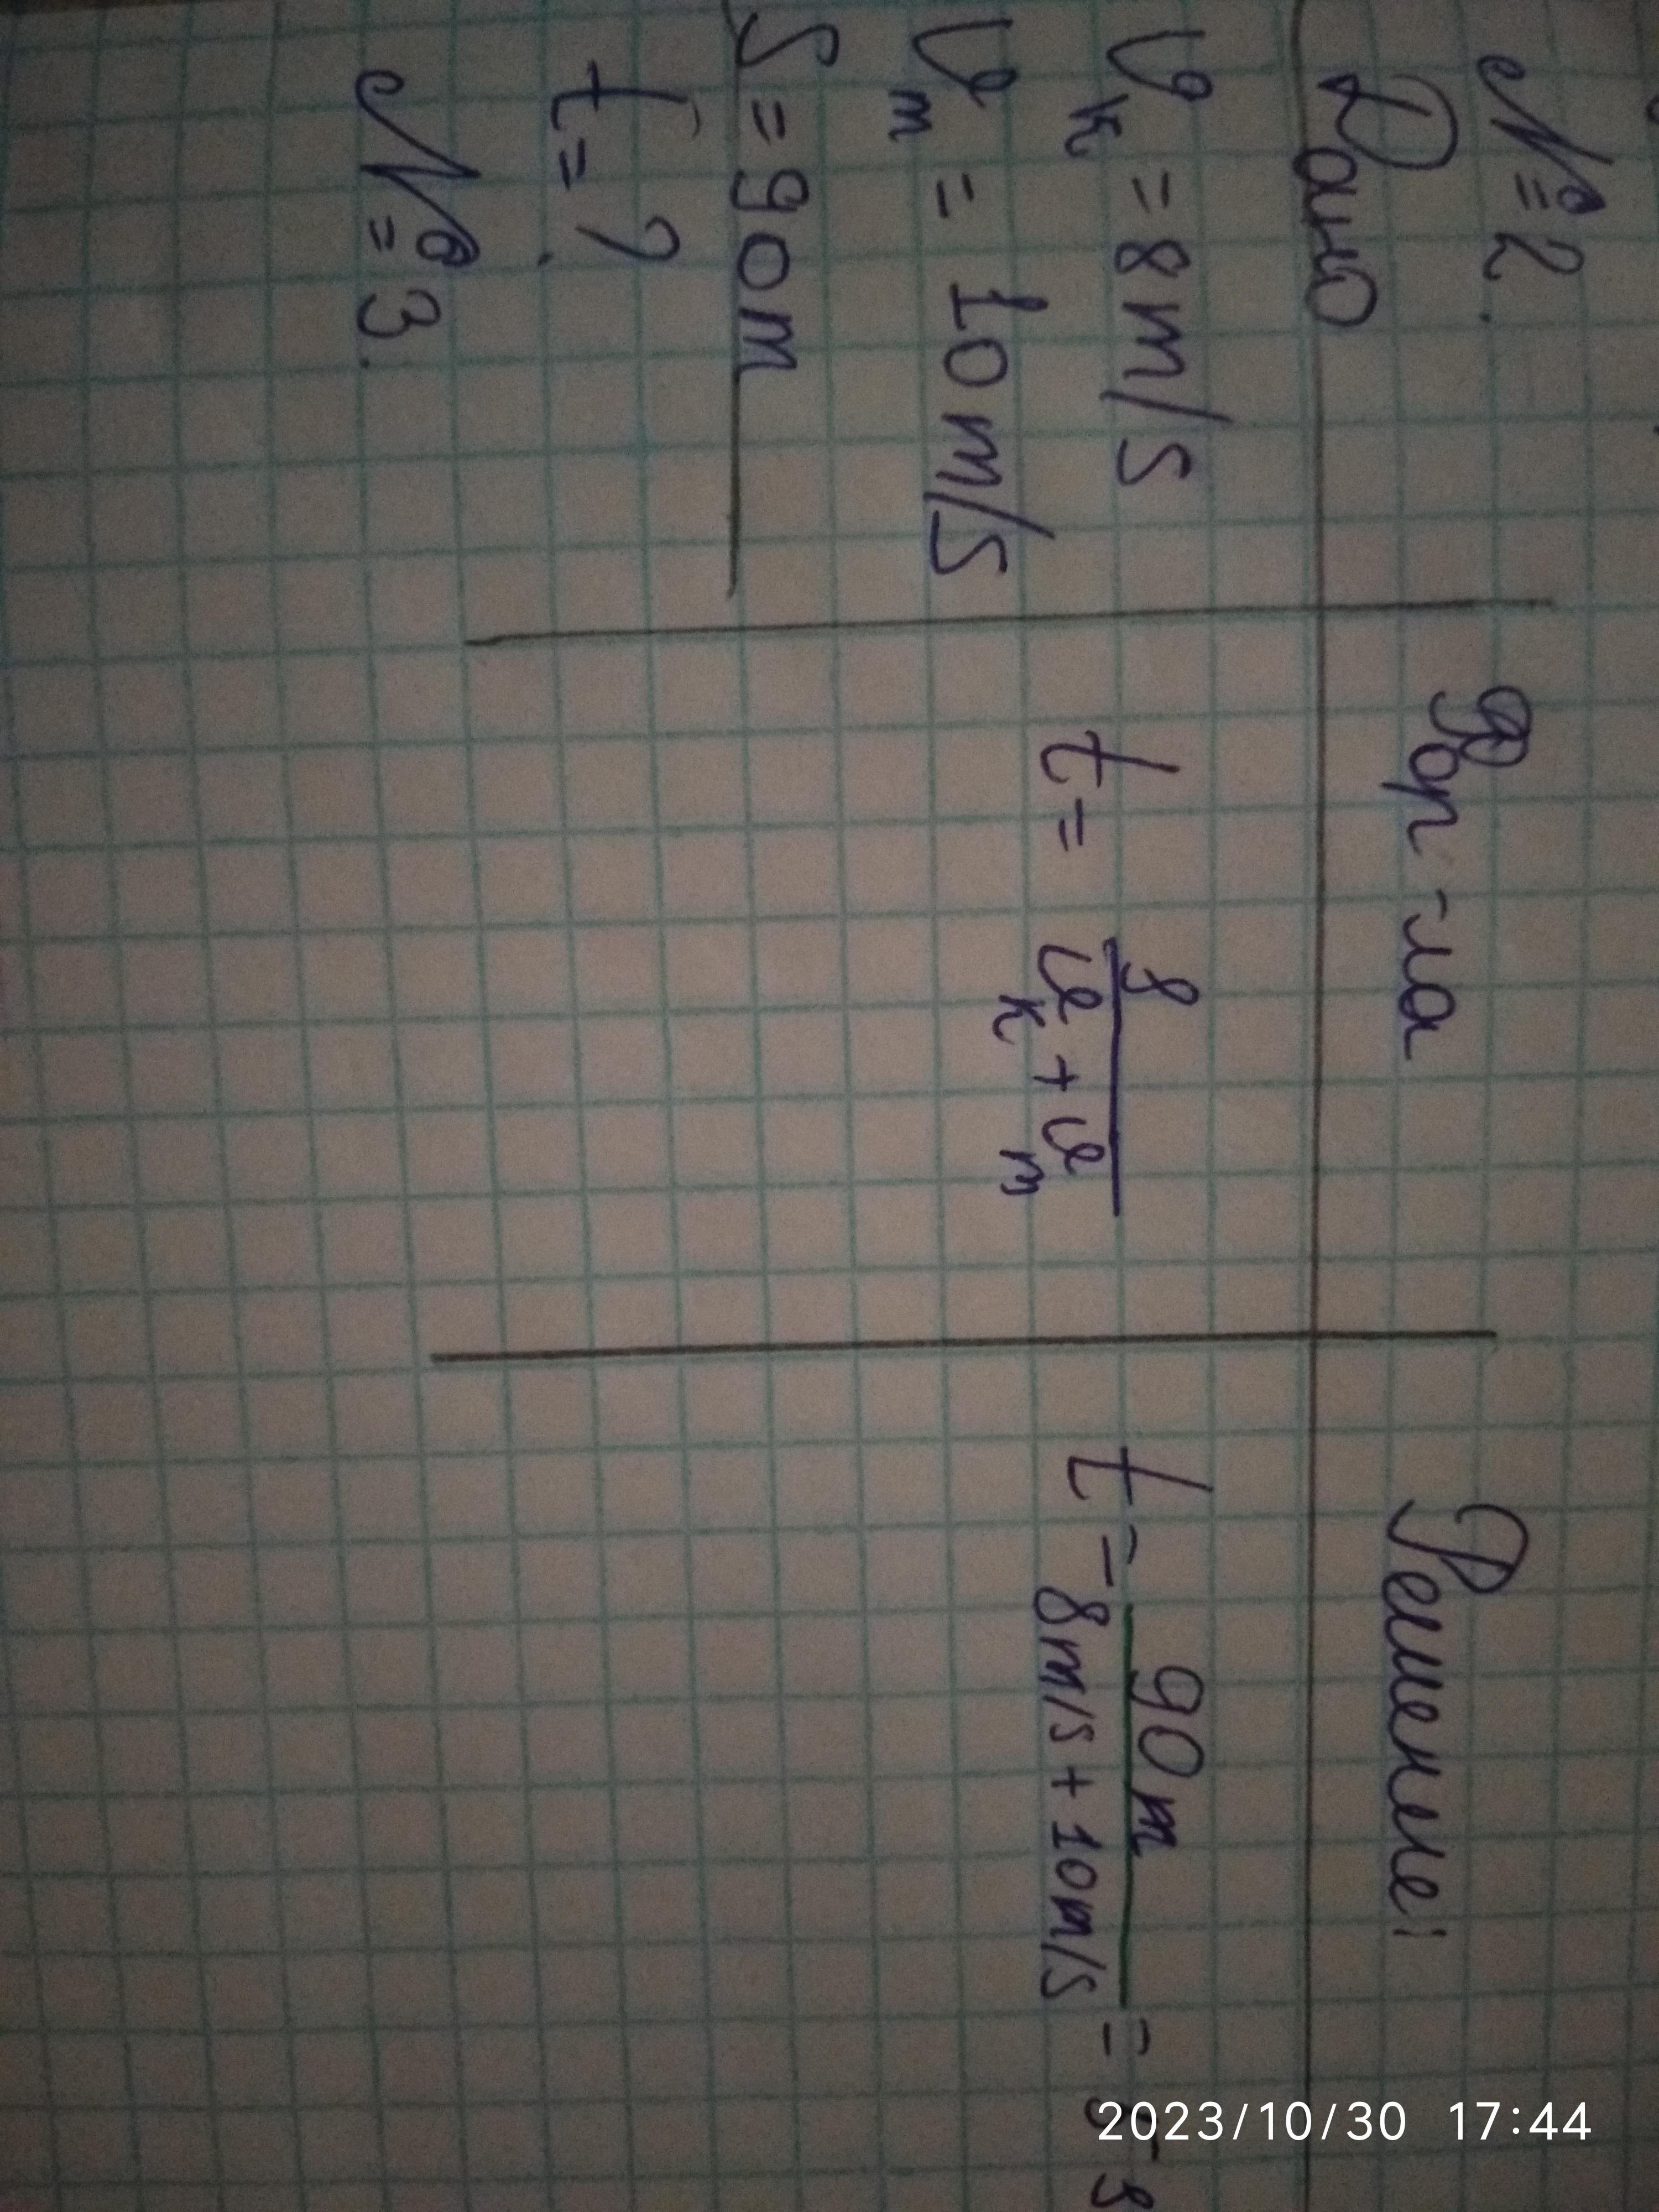 №2.
Дано
Vk = 8m/s
Vm = 10m/s
S = 90m
t = ?
№3.
Фор-ла
t = S / (Vk + Vm)
Решение:
t = 90m / (8m/s + 10m/s) =
2023/10/30 17:44